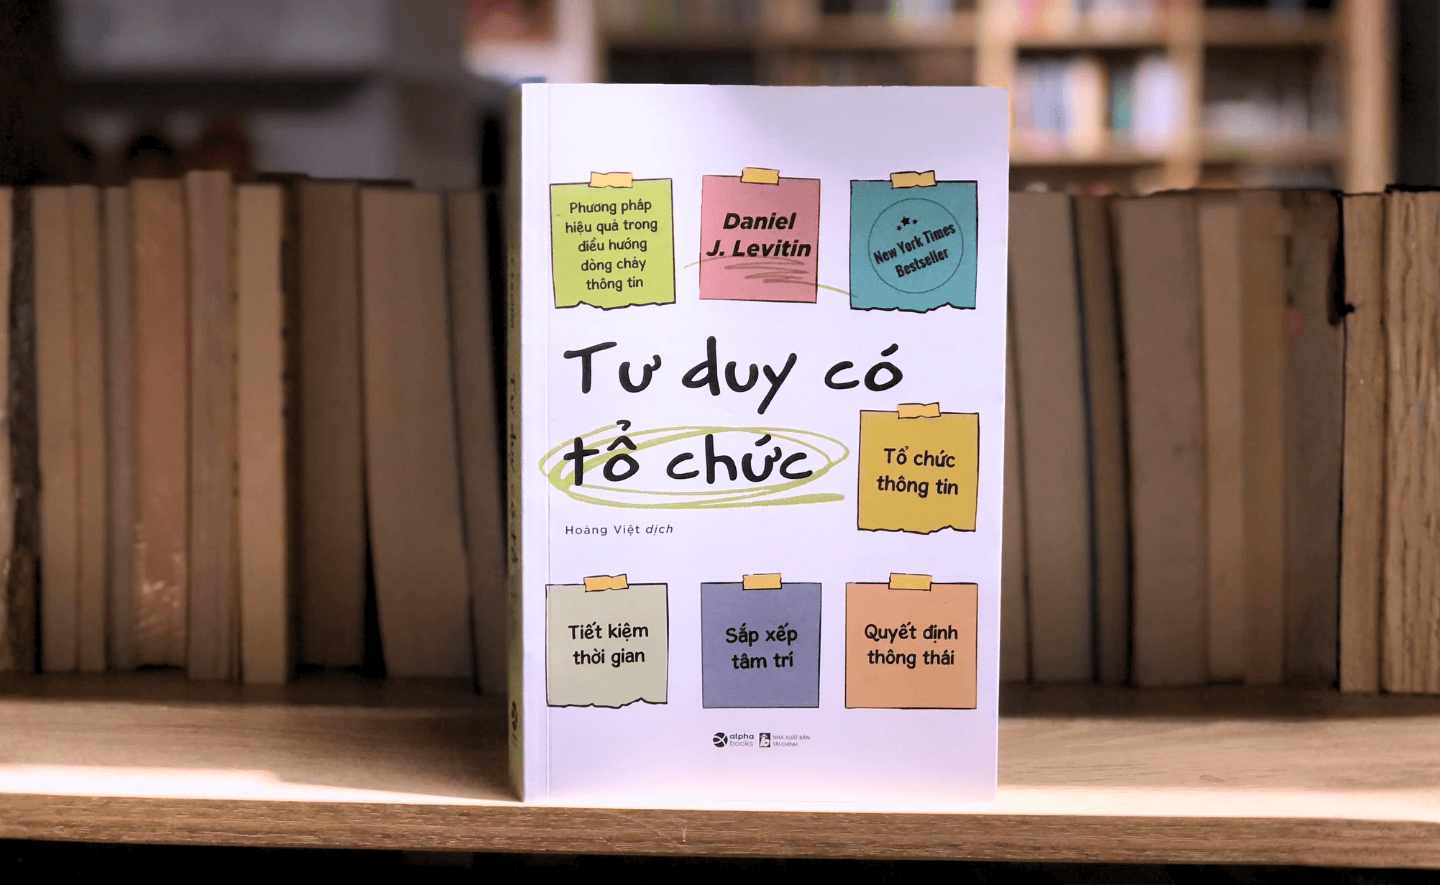 Phương pháp
hiệu quả trong
điều hướng
dòng chảy
thông tin
Daniel
J. Levitin
New York Times
Bestseller
Tư duy có
tổ chức
Tổ chức
thông tin
Hoàng Việt dịch
Tiết kiệm
thời gian
Sắp xếp
tâm trí
Quyết định
thông thái
alpha
books
NHÀ XUẤT BẢN
TÀI CHÍNH
Tư duy có tổ